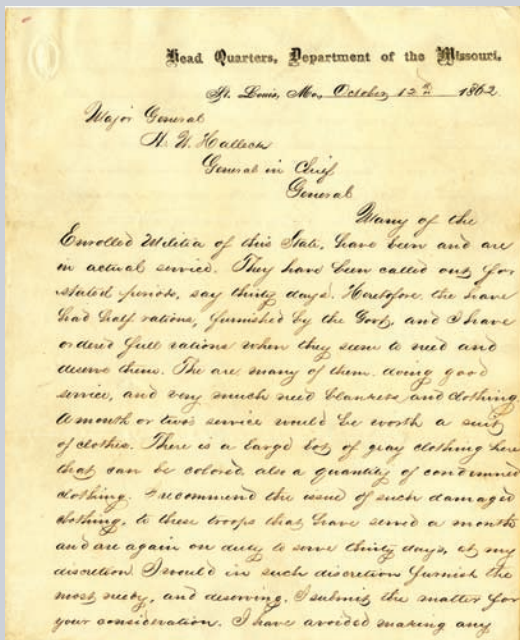 Head Quarters, Department of the Missouri.
St. Louis, Mo., October, 12th 1862
Major General
H. W. Halleck
General in Chief
General
Many of the
Enrolled Militia of this State, have been and are
in actual service. They have been called out for
stated periods, say thirty days. Heretofore the have
had half rations, furnished by the Govt, and I have
ordered full rations when they seem to need and
deserve them. The are many of them doing good
service, and very much need blankets and clothing.
A month or two's service would be worth a suit
of clothes. There is a large lot of gray clothing here
that can be colored, also a quantity of condemned
clothing. I recommend the issue of such damaged
clothing, to these troops that have served a month
and are again on duty to serve thirty days, at my
discretion. I would in such discretion furnish the
most needy, and deserving. I submit the matter for
your consideration. I have avoided making any